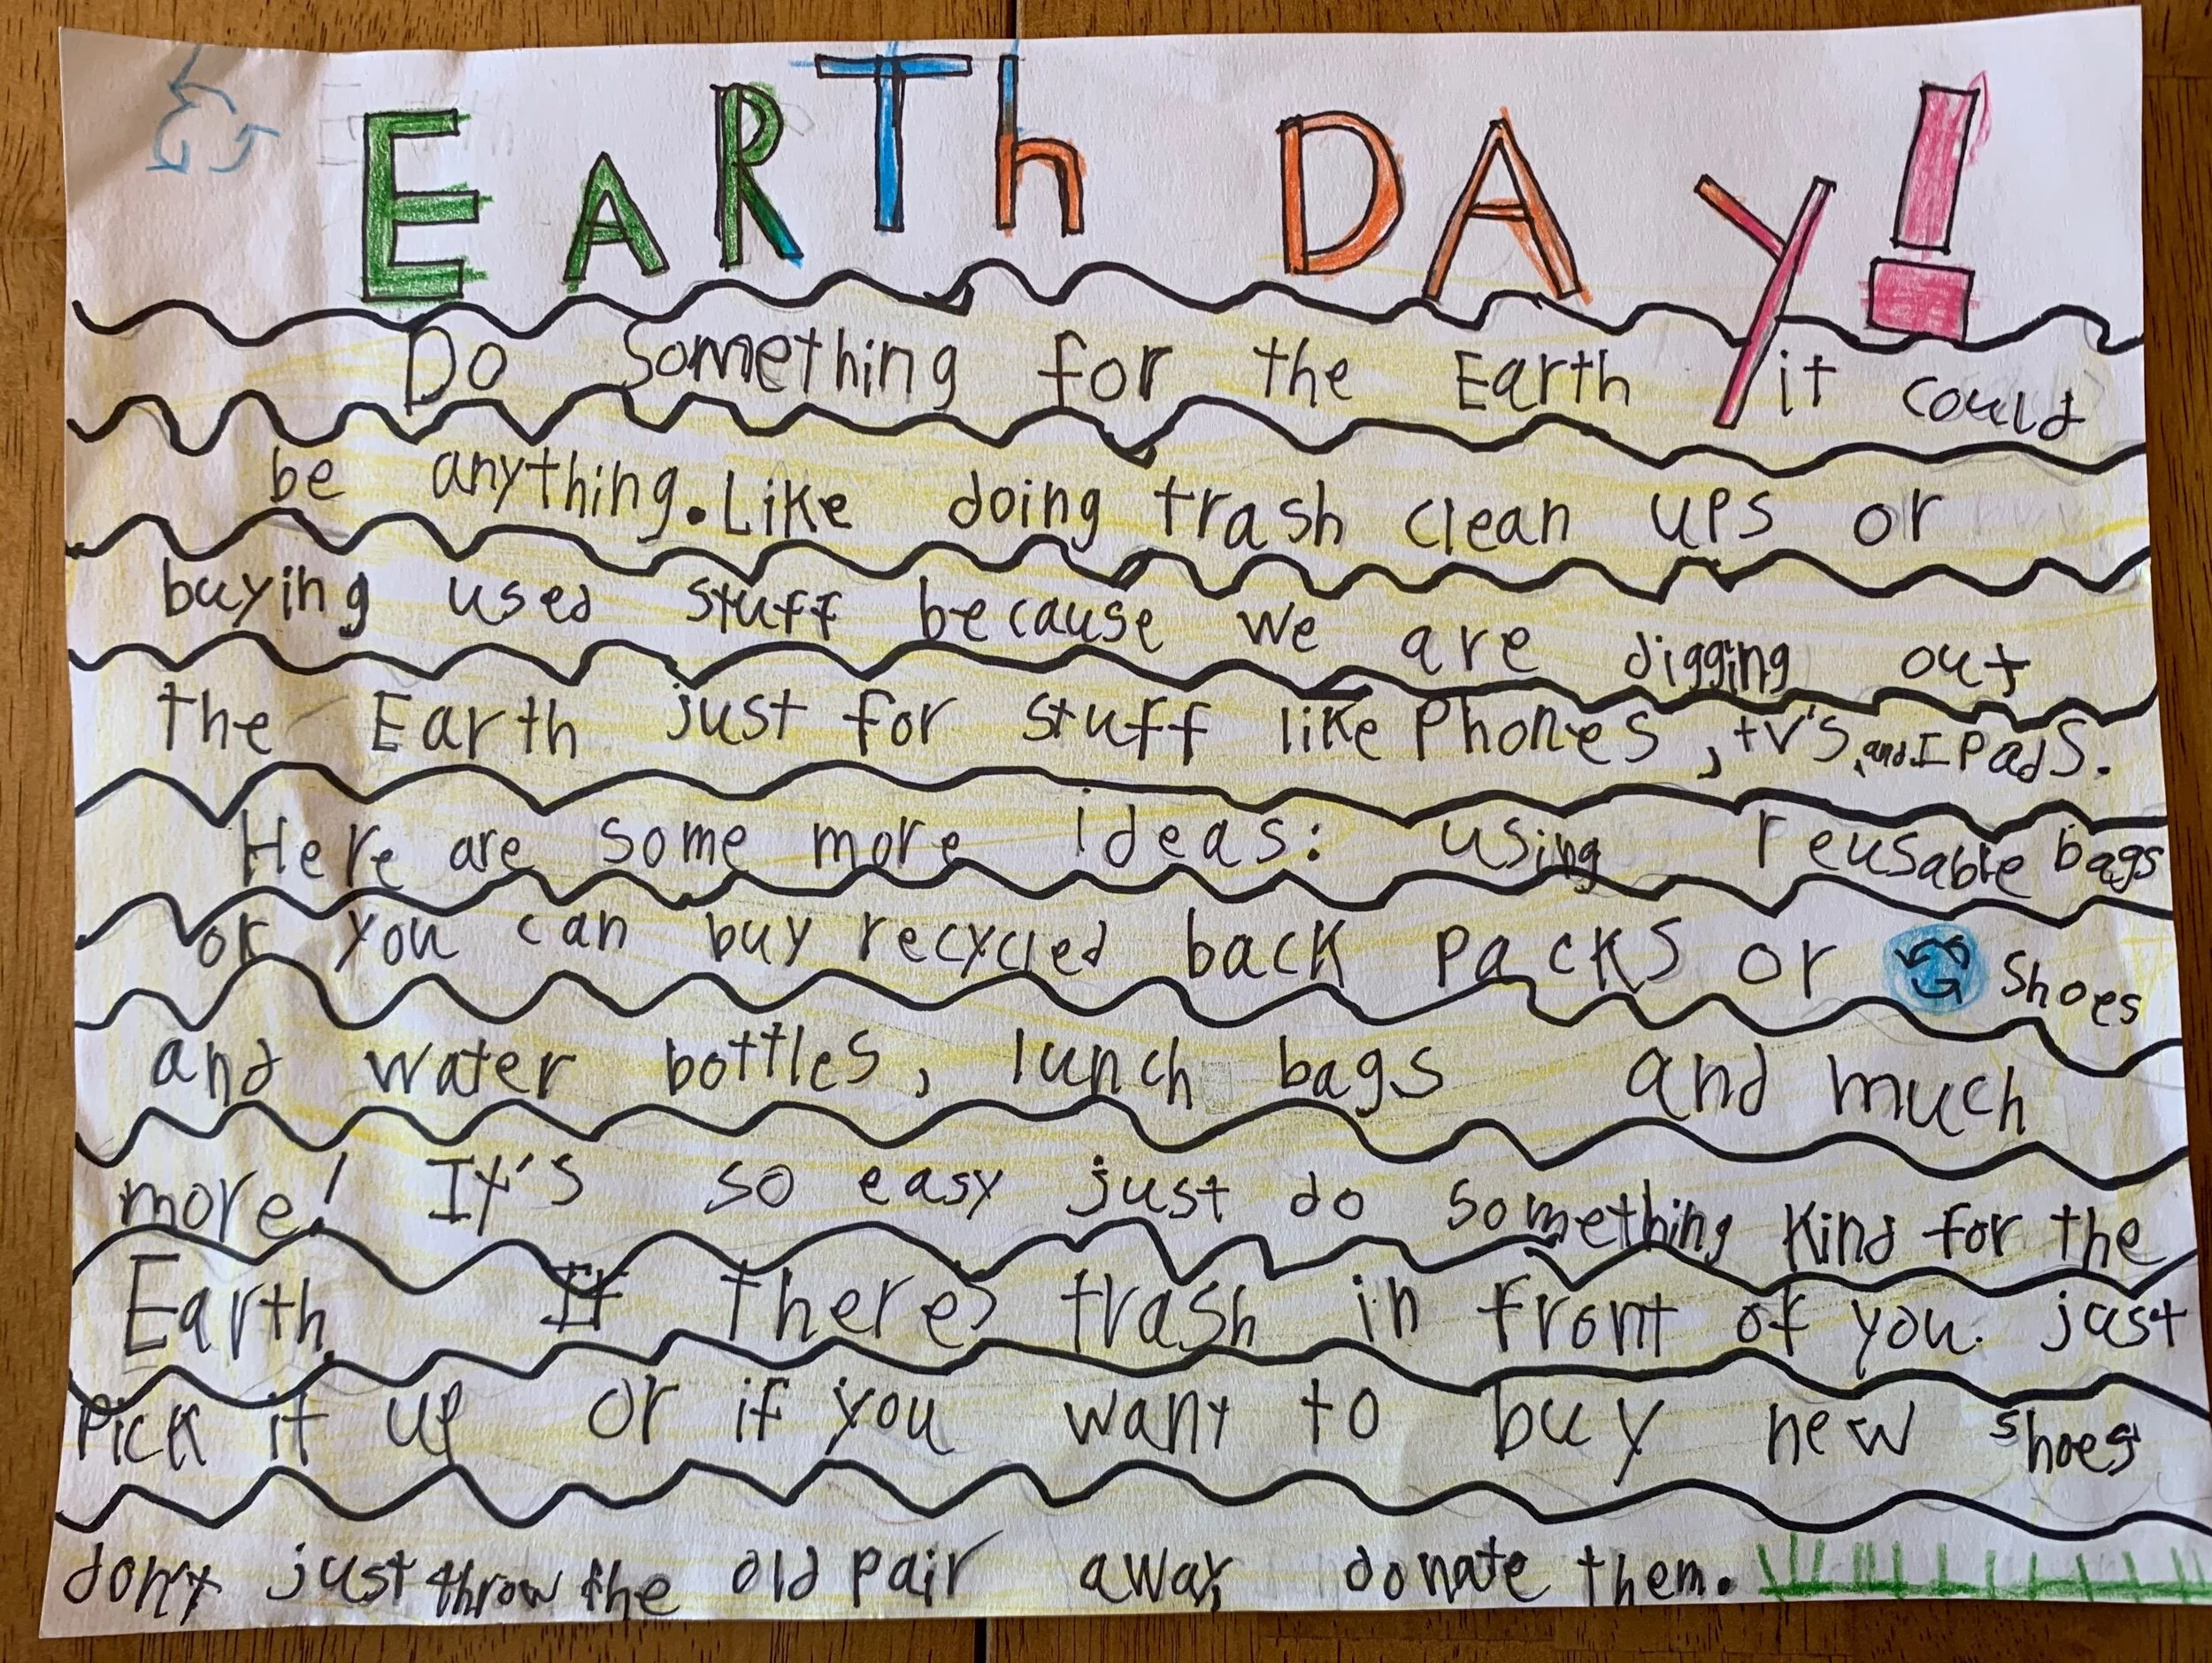 EARTh DAY!
Do something for the Earth it could
be anything. Like doing trash clean ups or
buying used stuff because we are digging out
the Earth just for stuff like Phones, tv's, and IPads.
Here are some more ideas: using reusable bags
or you can buy recycled back packs or shoes
and water bottles, lunch bags and much
more! It's so easy just do something kind for the
Earth. If theres trash in front of you just
Pick it up or if you want to buy new shoes
don't just throw the old pair away donate them.